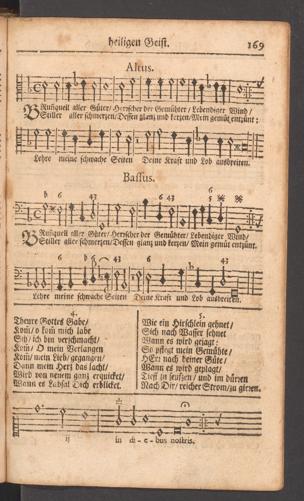 heiligen Geist. 169
Altus.
BRunquell aller Güter/ Herrscher der Gemühter/ Lebendiger Wind/
Stiller aller schmerzen/ Dessen glantz und kerzen/ Mein gemüt entzünt:
Lehre meine schwache Seiten Deine Kraft und Lob ausbreiten.
Bassus.
b 6 43 6 43 6
BRunquell aller Güter/ Herrscher der Gemühter/ Lebendiger Wind/
Stiller aller schmerzen/ Dessen glantz und kerzen/ Mein gemüt entzünt.
Lehre meine schwache Seiten Deine Kraft und Lob ausbreiten.
4.
Theure Gottes Gabe/
Kom/ o kom mich labe
Sih/ ich bin verschmacht/
Kom/ O mein Verlangen
Kom/ mein Lieb/ gegangen/
Dann mein Herz das lacht/
Wird von neuem ganz erquicket/
Wann es Labsal Dich erblicket.
5.
Wie ein Hirschlein gehnet/
Sich nach Wasser sehnet
Wann es wird gejagt:
So pflegt mein Gemühte/
HErr nach deiner Güte/
Wann es wird geplagt/
Tieff zu seufzen/ und im dürren
Nach Dir/ reicher Strom/ zu girren.
in di-e-bus nostris.